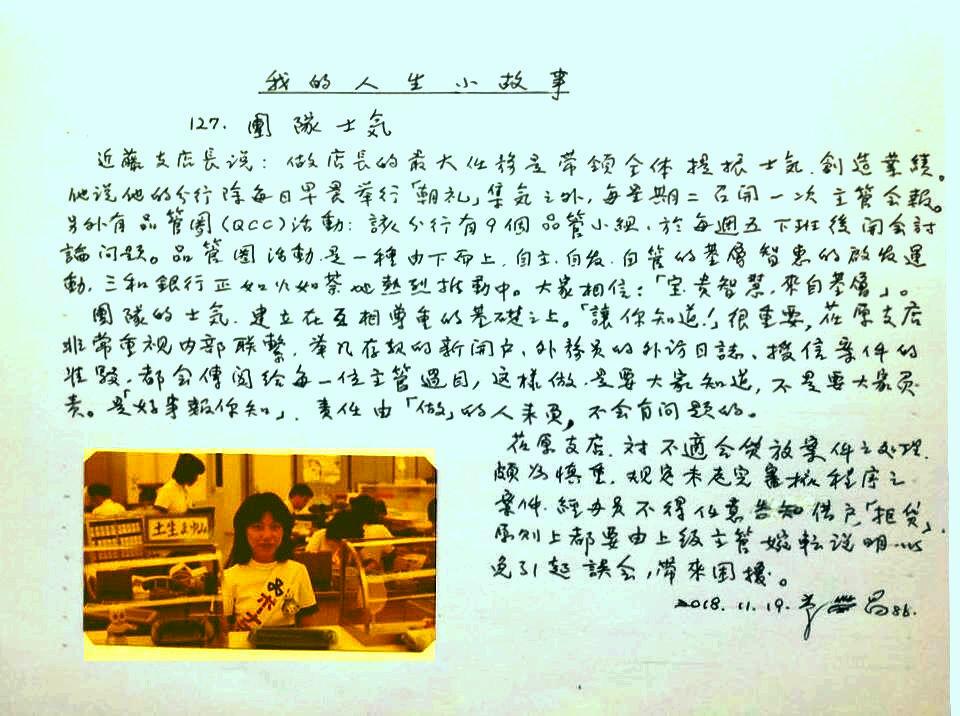 我的人生小故事
127. 團隊士気
近藤支店長说：做店長的最大任務是帶領全体提振士気.創造業績。
他说他的分行除每日早晨举行「朝礼」集気之外，每星期二召開一次主管会報。
另外有品管圈(QCC)活動：該分行有9個品管小組、於每週五下班後開会討
論问題。品管圈活動.是一種由下而上.自主.自发.自管的基層智惠的啟发運
動.三和銀行正如火如荼地熱烈推動中。大家相信：「宝貴智慧.來自基層」。
團隊的士気.建立在互相尊重的基礎之上。「讓你知道！」很重要，荏原支店
非常重視内部联繫，举凡存款的新開户、外務員的外访日誌、授信案件的
准駁，都会傳阅给每一位主管過目，这樣做.是要大家知道，不是要大家負
責。是「好事報你知」、責任由「做」的人来負，不会有问題的。
荏原支店.対不適合貸放案件之处理.
頗为慎重.规定未走完審核程序之
案件.經办員不得任意告知借户「拒貸」.
原则上都要由上级主管婉転说明.以
免引起誤会，帶来困擾。
2018.11.19. 昌88.
土生